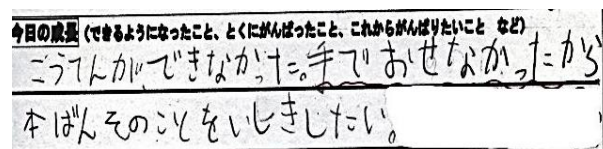 今日の成長(できるようになったこと、とくにがんばったこと、これからがんばりたいこと など)
こうてんができなかった。手でおせなかったから
本ばんそのことをいしきしたい。